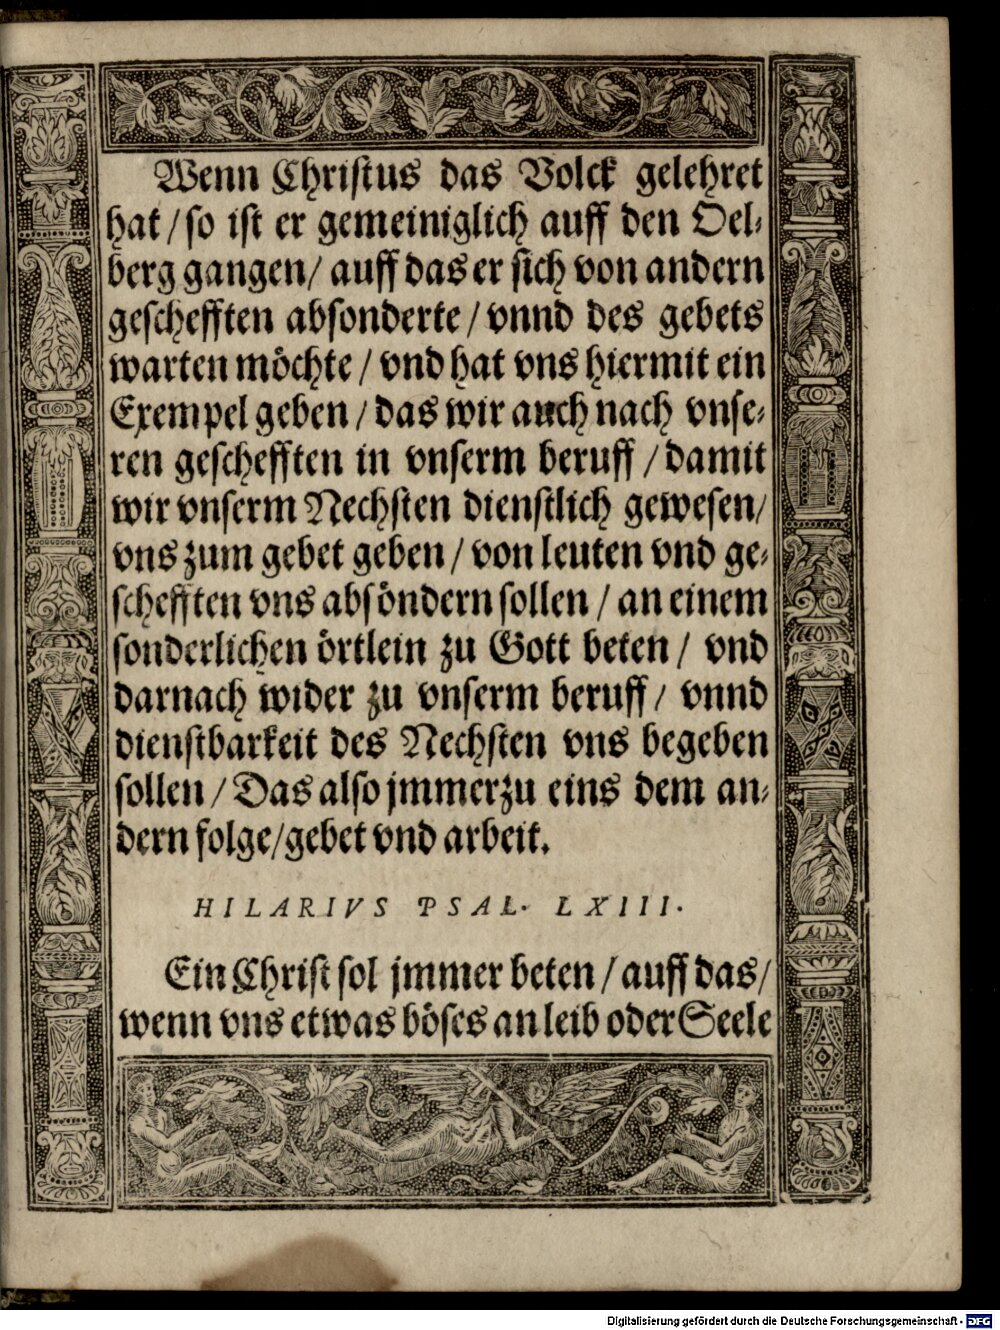 Wenn Christus das Volck gelehret
hat / so ist er gemeiniglich auff den Oel-
berg gangen / auff das er sich von andern
geschefften absonderte / vnnd des gebets
warten möchte / vnd hat vns hiermit ein
Exempel geben / das wir auch nach vnse-
ren geschefften in vnserm beruff / damit
wir vnserm Nechsten dienstlich gewesen /
vns zum gebet geben / von leuten vnd ge-
schefften vns absöndern sollen / an einem
sonderlichen örtlein zu Gott beten / vnd
darnach wider zu vnserm beruff / vnnd
dienstbarkeit des Nechsten vns begeben
sollen / Das also jmmerzu eins dem an-
dern folge / gebet vnd arbeit.
HILARIVS PSAL. LXIII.
Ein Christ sol jmmer beten / auff das /
wenn vns etwas böses an leib oder Seele
Digitalisierung gefördert durch die Deutsche Forschungsgemeinschaft - DFG